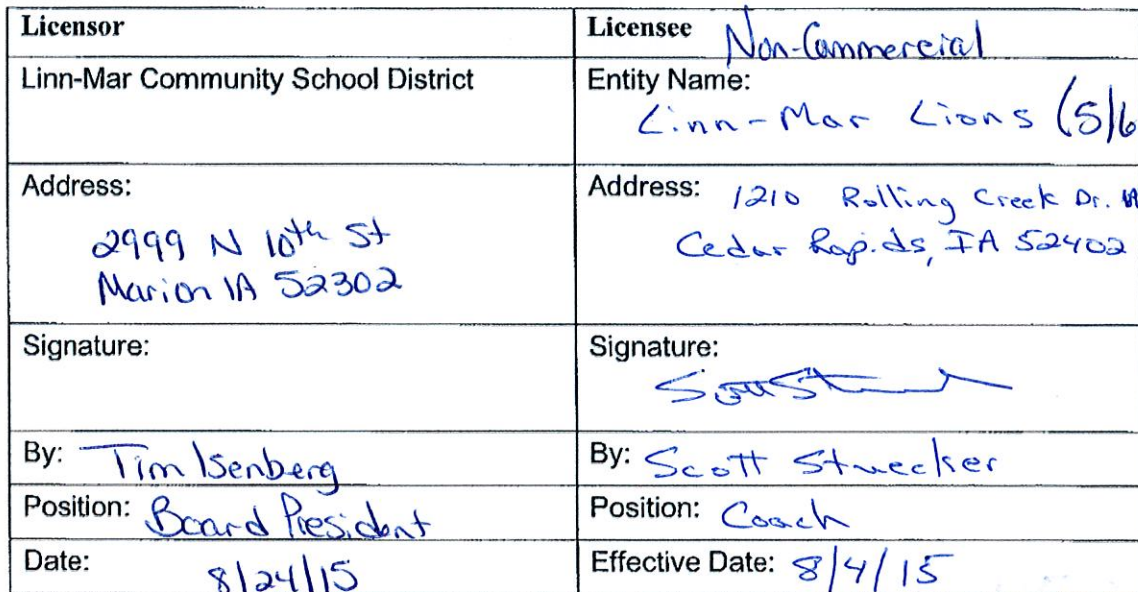 Licensor
Licensee Non-Commercial
Linn-Mar Community School District
Entity Name:
Linn-Mar Lions (5/6
Address:
2999 N 10th St
Marion IA 52302
Address: 1210 Rolling Creek Dr.
Cedar Rapids, IA 52402
Signature:
Signature:
By: Tim Isenberg
By: Scott Struecker
Position: Board President
Position: Coach
Date: 8/24/15
Effective Date: 8/4/15